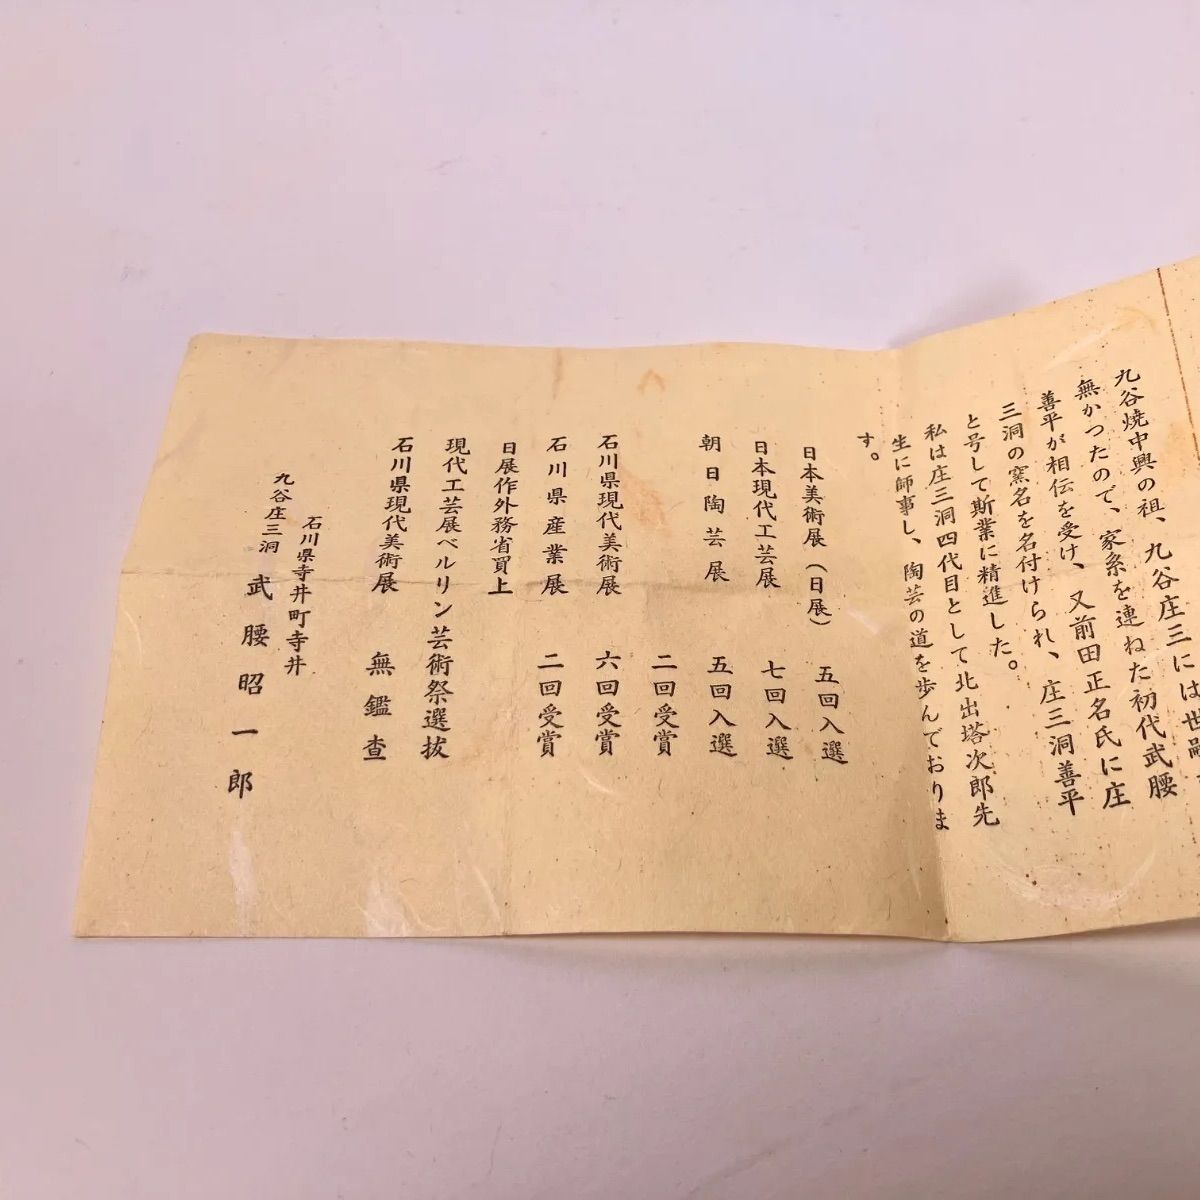 九谷焼中興の祖、九谷庄三には世嗣
無かつたので、家系を連ねた初代武腰
善平が相伝を受け、又前田正名氏に庄
三洞の窯名を名付けられ、庄三洞善平
と号して斯業に精進した。
私は庄三洞四代目として北出塔次郎先
生に師事し、陶芸の道を歩んでおりま
す。
日本美術展(日展) 五回入選
日本現代工芸展 七回入選
朝日陶芸展 五回入選
二回受賞
石川県現代美術展 六回受賞
石川県産業展 二回受賞
日展作外務省買上
現代工芸展ベルリン芸術祭選抜
石川県現代美術展 無鑑査
石川県寺井町寺井
九谷庄三洞 武腰昭一郎